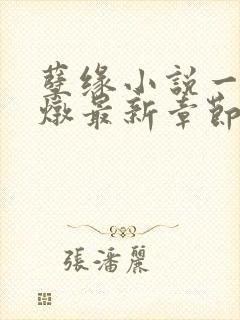 孽缘小説一
燉最新章節
張潘麗